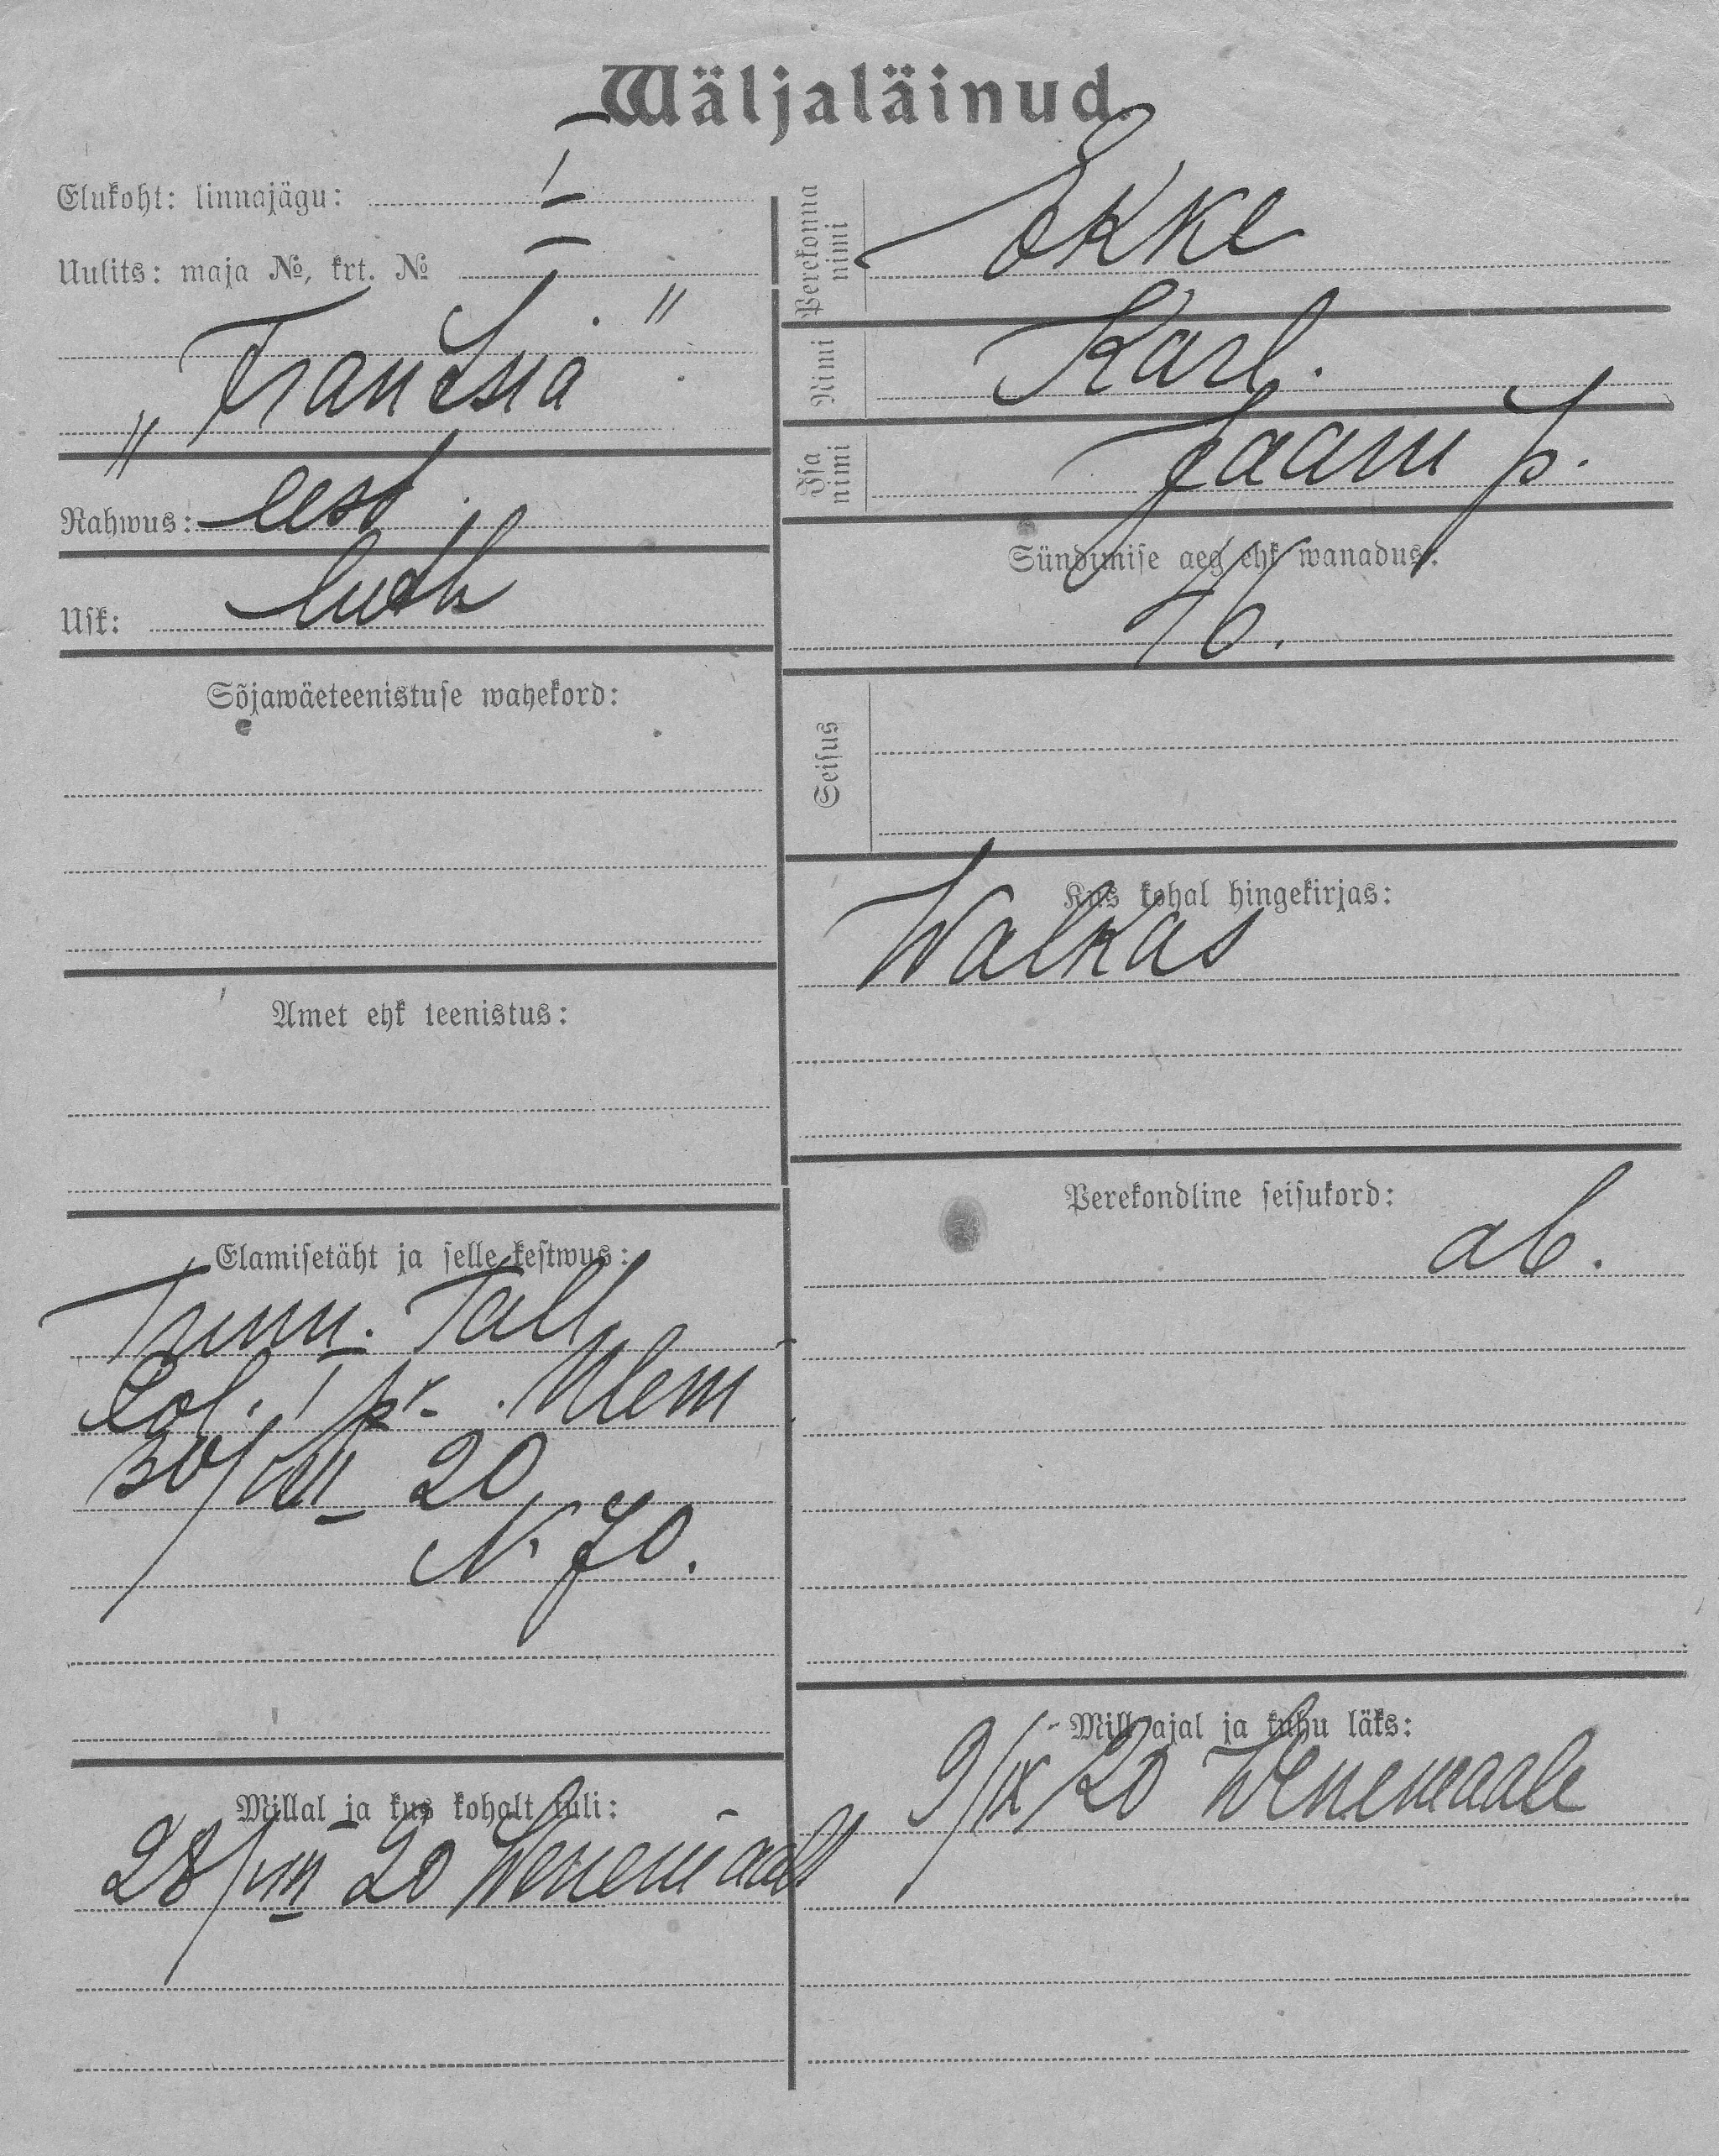 Wäljaläinud.
Elukoht: linnajägu: I
Uulits: maja №, krt. №
„Frantsia"
Rahwus: eest.
Usk: luth
Sõjawäeteenistuse wahekord:
Amet ehk teenistus:
Elamisetäht ja selle kestwus:
Tunn. Tall.
Pol. I pr. Ülem
30/VIII 20
N. 70.
Millal ja kus kohalt tuli:
28/VIII 20 Wenemaalt
Perekonna nimi
Ekke
Nimi
Karl.
Isa nimi
Jaani p.
Sündimise aeg ehk wanadus:
46.
Seisus
Kus kohal hingekirjas:
Walkas
Perekondline seisukord:
ab.
Mill ajal ja kuhu läks:
9/IX 20 Wenemaale